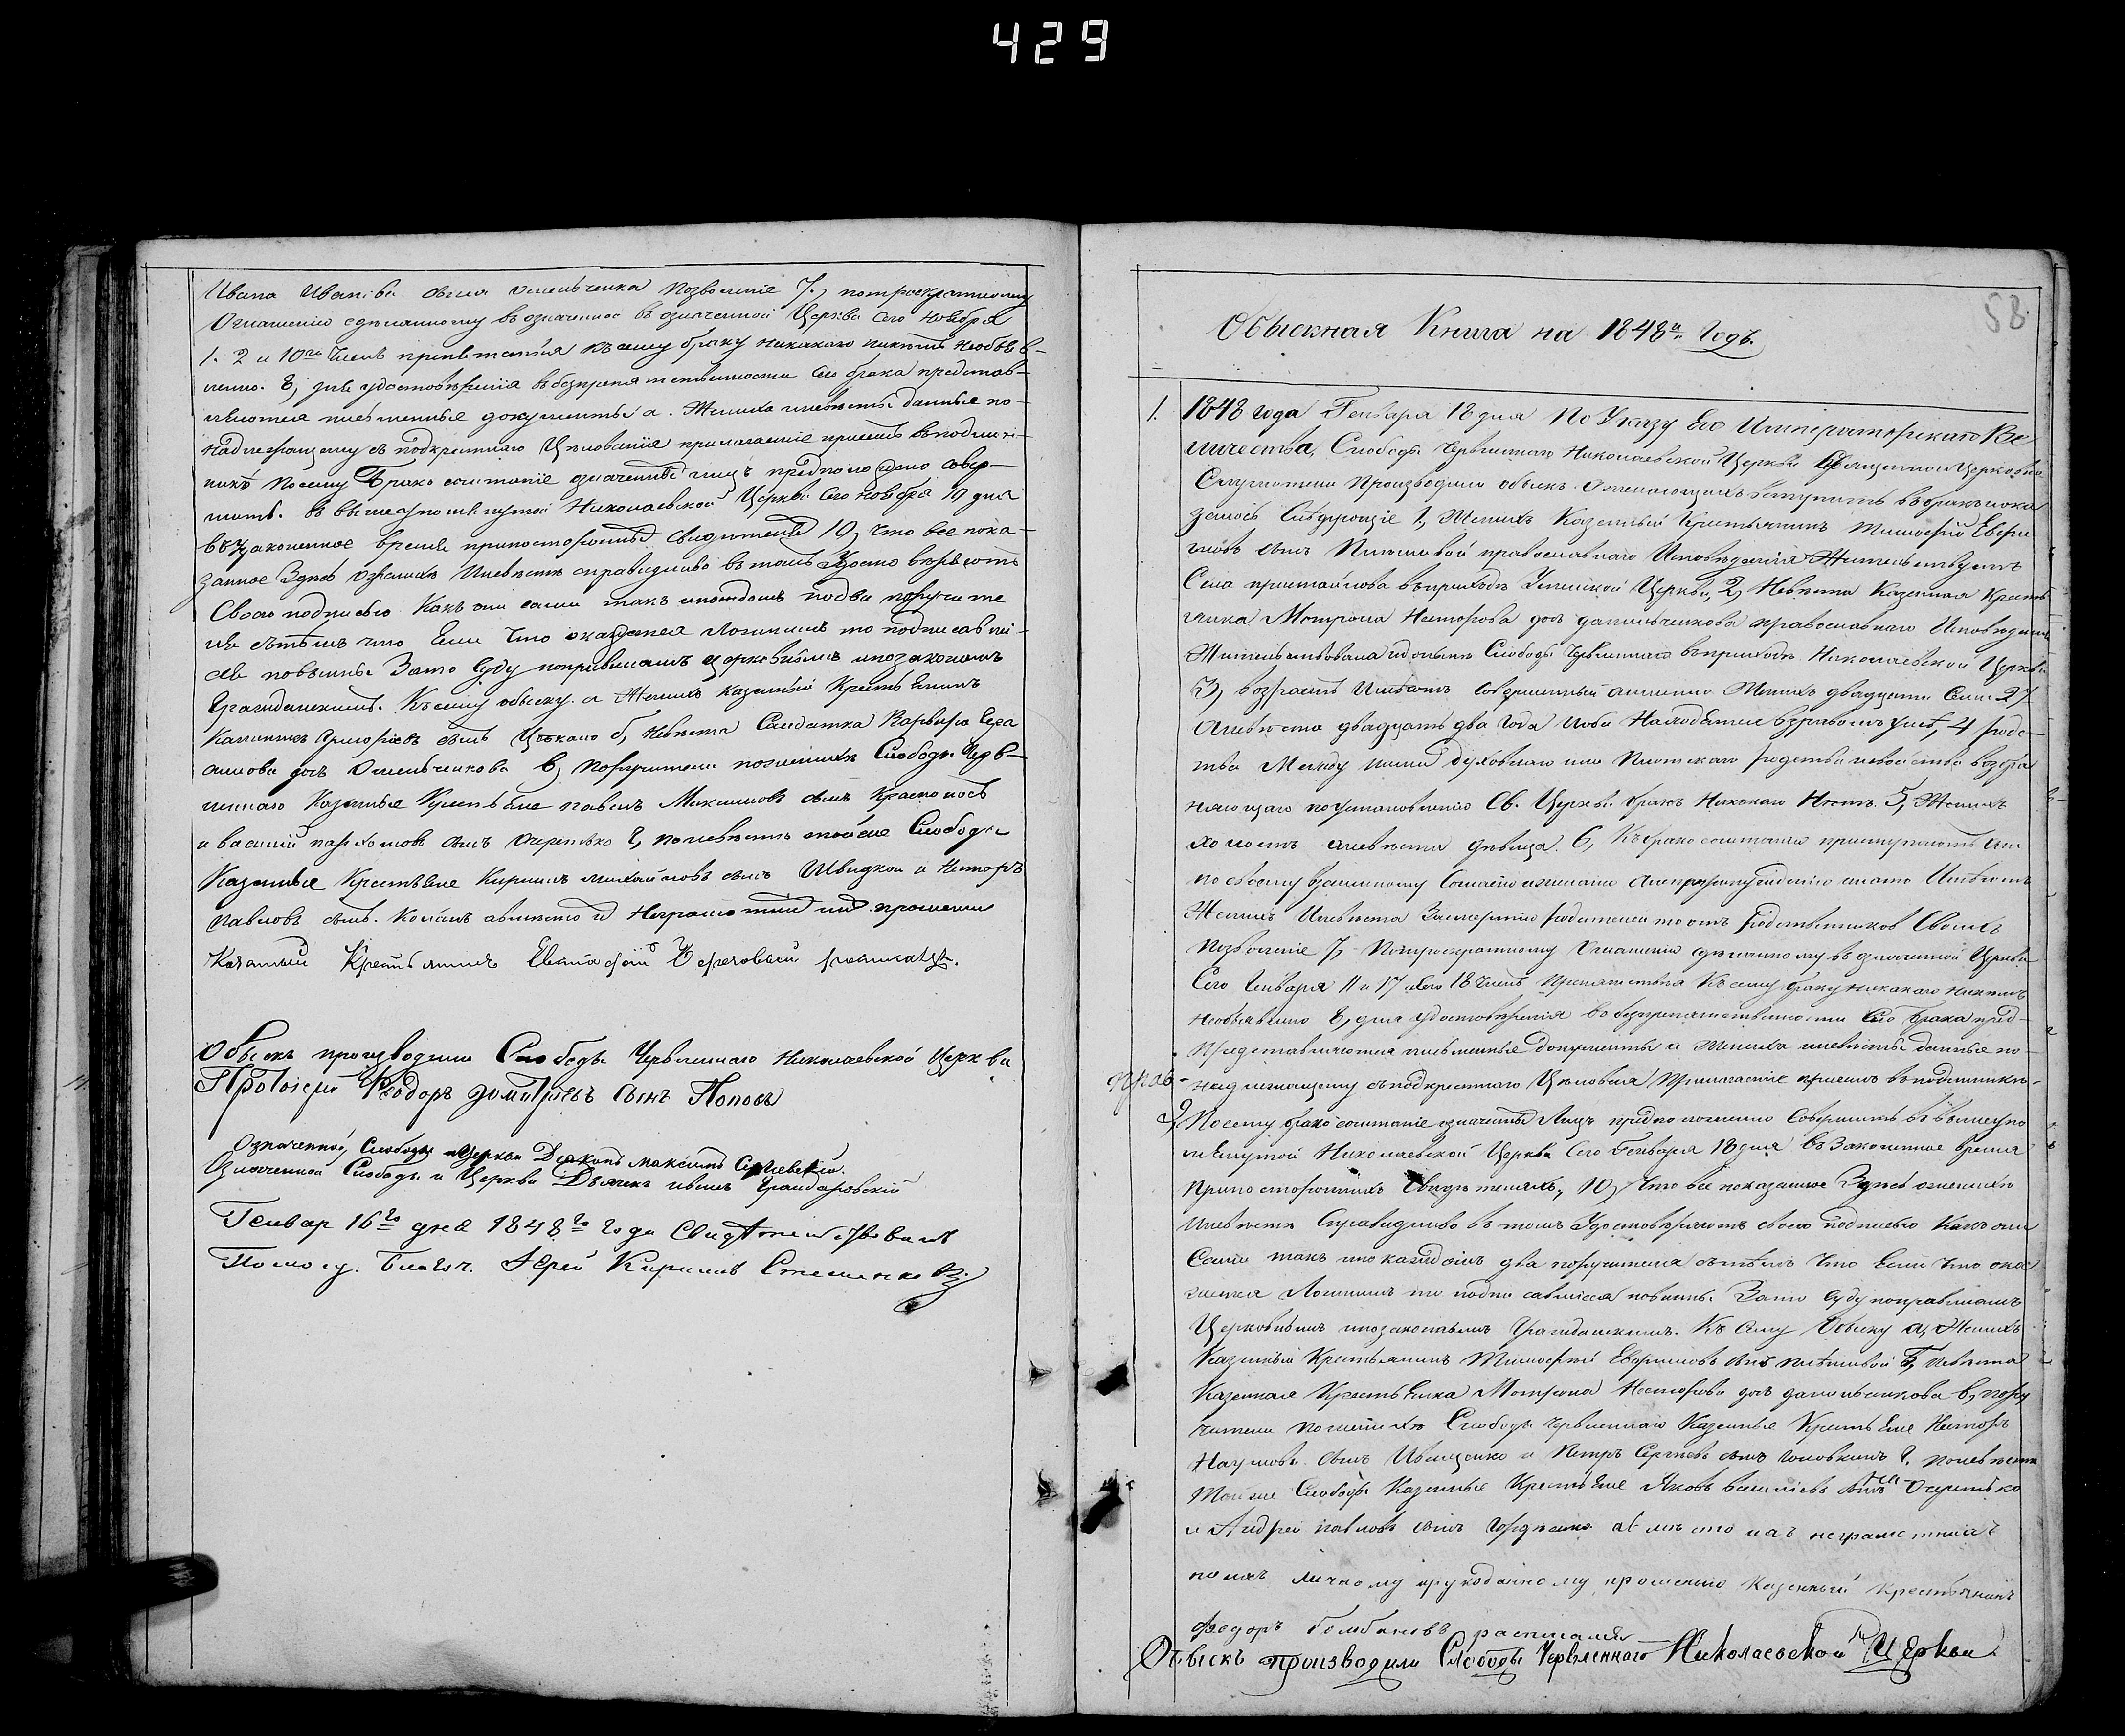 429
Ивана Иванова сына Омельченка позволение 7, потроекратному
Оглашению сделанному в означенной Церкви сего Ноября
1. 2 и 10го числъ препятствия къ сему браку никакого никемъ необъяв-
ленно. 8, для удостоверения в безпрепятственности сего брака представ-
ляются письменные документы а. Жениха и невесты данные по-
надлежащему съ подкрестнаго Целования
Посему Брако сочетание означенныхъ лицъ предположено совер-
шить. в вышеупомянутой Николаевской Церкви сего Ноября 10 дня
в узаконенное время при посторонныхъ свидетеляхъ 10, что все пока-
занное Здесь о Женихе и Невесте справедливо въ томъ Удостоверяютъ
Своею подписью Какъ они сами такъ и по каждомъ по два поручите
ля съ темъ что Если Что окажется Ложнымъ то подписавши-
ся повинны Зато Суду по правиламъ церковнымъ и по законамъ
Гражданскимъ. Къ сему обыску. а Женихъ казенный Крестьянинъ
Григориевъ сынъ б, Невеста Солдатка Варвара Гера
симова дочь Омельченкова в, Поручители по женихе Слободы Черв-
леннаго Казенные Крестьяне Павелъ Максимовъ сынъ
и василий пархомовъ сынъ Очеретько г, по невесте тойже Слободы
Казенные Крестьяне Кирилъ Михайловъ сынъ Швидкой и Несторъ
Павловъ сынъ. а вместо ихъ Неграмотныхъ и по прошению
Казенный Крестьянинъ Евстафий росписался.
Обыскъ производили Слободы Червленнаго Николаевской Церкви
Протоиерей Феодоръ Димитриевъ Сынъ Поповъ
Означенной Слободы и Церкви Диаконъ Максимъ
Означенной Слободы и Церкви Дьячекъ Грайдаровский
Генвар 16го дня 1848го года Свидетельствовалъ
Помощ. Благоч. Иерей Кирилъ Стешенковъ
58
Обыскная Книга на 1848й Годъ.
1. 1848 года Генваря 18 дня По Указу Его Императорскаго Ве
личества, Слободы Червленнаго Николаевской Церкви Священно и Церковно
Служители Производили обыскъ о желающихъ вступить въ бракъ и ока
залось Следующее 1, Женихъ Казенный Крестьянинъ Тимофей Ефре
мовъ сынъ православнаго Исповедания Жительствуетъ
Села въ приходе Успенской Церкви, 2, Невеста Казенная Кресть
янка Мотрона Несторова дочь Данильченкова православнаго Исповедания
Жительствовала идоныне Слободы Червленнаго въ приходе Николаевской Церкви
3, возрастъ Имеютъ Совершенный а именно Женихъ двадцати Семи 27
а невеста двадцать два Года и оба Находятся в здравомъ уме, 4 родс-
тва Между ними духовнаго или Плотскаго родства и свойства возбра
няющаго по установлению Св. Церкви бракъ Никакаго Нетъ. 5, Женихъ
холостъ а невеста девица. 6, Къ брако сочетанию приступаютъ они
по своему взаимному Согласию и желанию а не по принуждению и на то Имеютъ
Женихъ и невеста За смертию родителей то отъ родственников Своихъ
позволение 7, Потроекратному Оглашению сделанному въ означенной Церкви
Сего Генваря 11 и 17 и сего 18 Числъ Препятствия Къ сему браку никакого никемъ
необъявлено 8, для удостоверения в безпрепятственности сего брака пред-
представляются письменные документы а Жениха и невесты данные по-
надлежащему съ подкрестнаго Целования
9, Посему брако сочетание означенныхъ Лицъ предположенно Совершить въ вышеупо
мянутой Николаевской Церкви сего Генваря 18 дня въ Законное время
При посторонныхъ Свидетеляхъ, 10, Что все показанное Здесь о женихе
и невесте Справедливо въ томъ Удостоверяютъ своею подписью Какъ они
Сами такъ и по каждомъ два поручителя съ темъ Что Если Что ока
жется Ложнымъ то подписавшиеся повинны Зато Суду по правиламъ
Церковнымъ и по законамъ Гражданскимъ. Къ Сему Обыску а, Женихъ
Казенный Крестьянинъ Тимофей Ефремовъ сынъ б, Невеста
Казенная Крестьянка Мотрона Несторова дочь Данильченкова в, пору
чители по женихе Слободы Червленнаго Казенные Крестьяне Несторъ
Наумовъ сынъ Иващенко и Петръ Сергеевъ сынъ Головкинъ г, по невесте
Тойже Слободы Казенные Крестьяне Яковъ васильевъ сынъ Очеретько
и Андрей павловъ сынъ а вместо ихъ неграмотныхъ
по ихъ личному и рукоданному прошению Казенный Крестьянинъ
Федоръ росписался
Обыскъ производили Слободы Червленнаго Николаевской Церкви